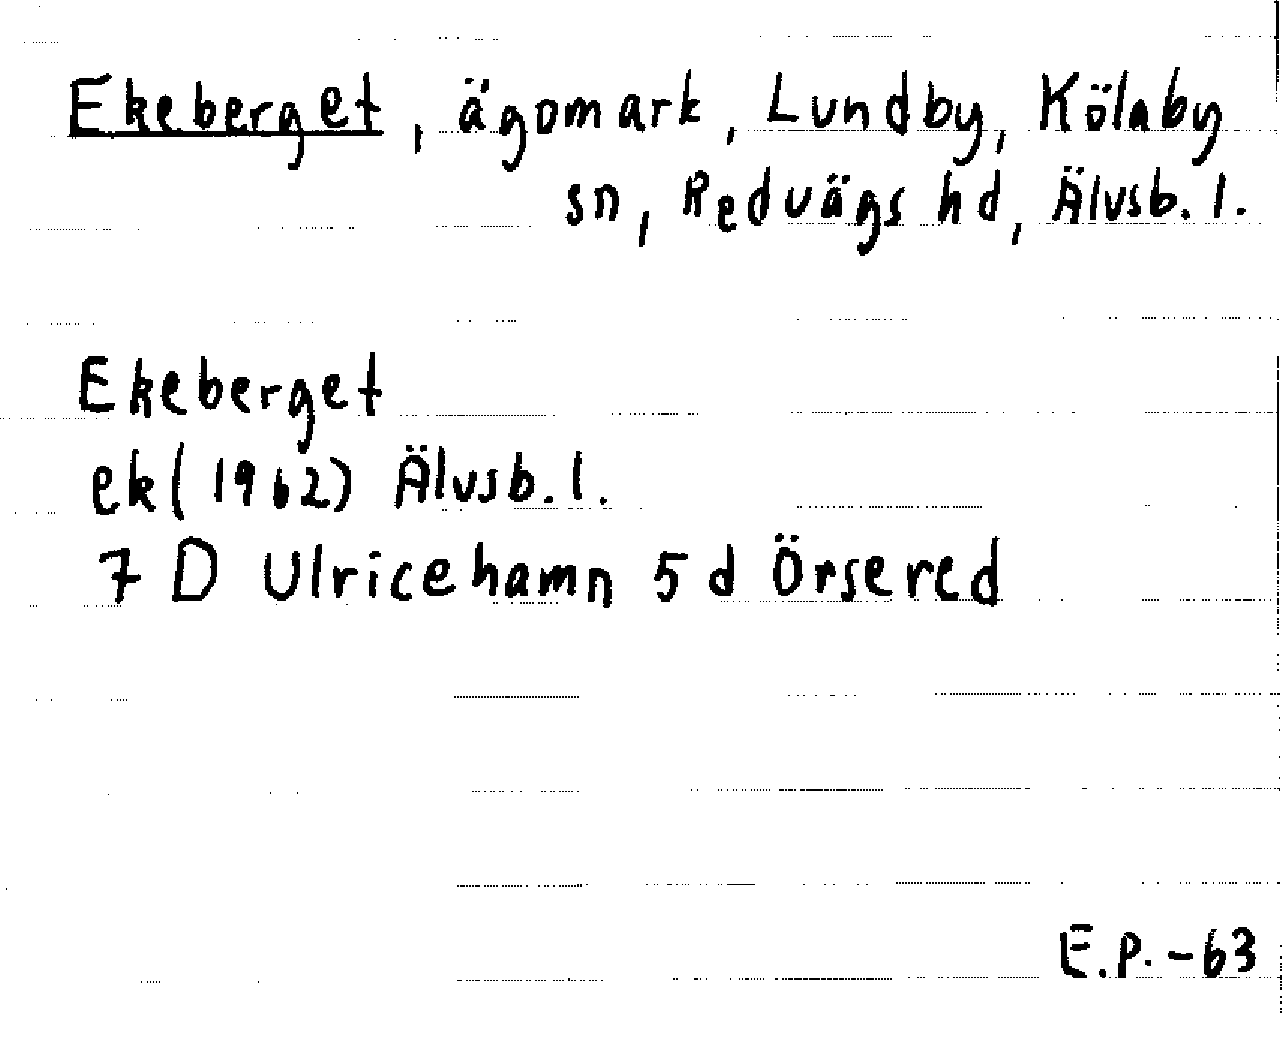 Ekeberget, ägomark, Lundby, Kölaby
sn, Redvägs hd, Älvsb. l.
Ekeberget
ek (1962) Älvsb. l.
7 D Ulricehamn 5 d Örsered
E.P. -63